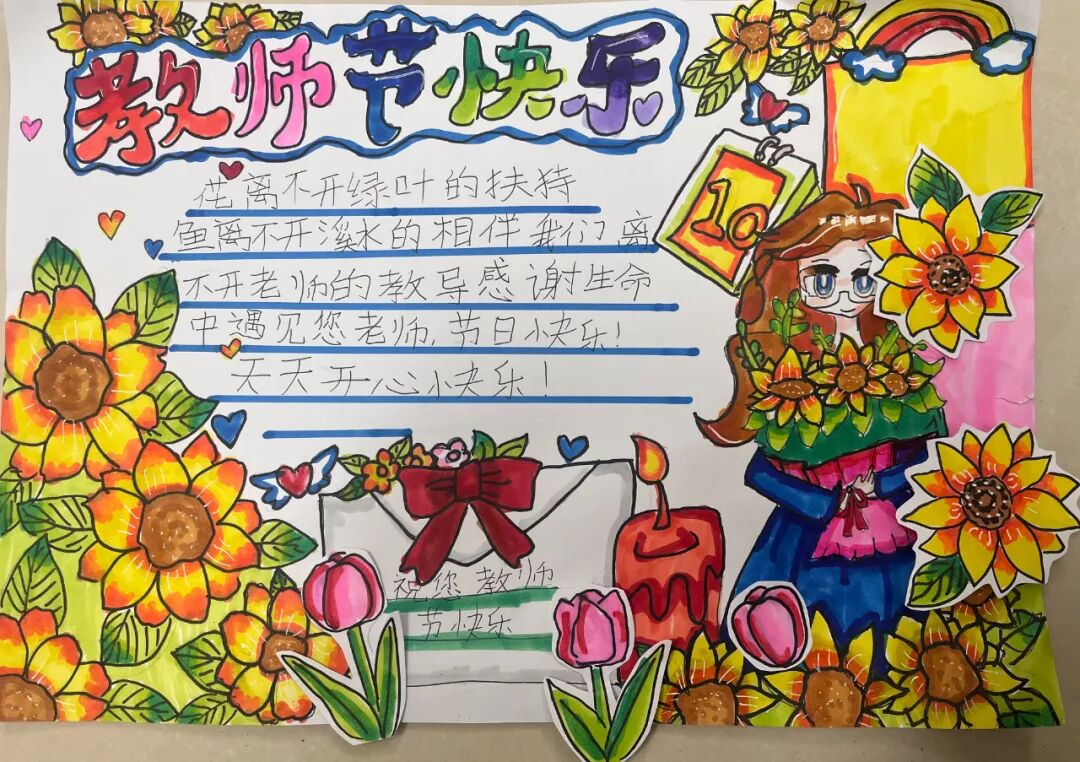 教师节快乐
10
花离不开绿叶的扶持
鱼离不开溪水的相伴我们离
不开老师的教导感谢生命
中遇见您老师,节日快乐!
天天开心快乐!
祝您教师
节快乐